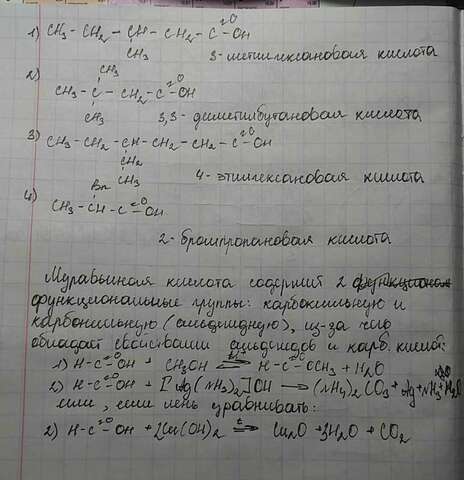 1) CH3 - CH2 - CH - CH2 - C =O - OH
CH3
3-метилгексановая кислота
2) CH3
CH3 - C - CH2 - C =O - OH
CH3
3,3-диметилбутановая кислота
3) CH3 - CH2 - CH - CH2 - CH2 - C =O - OH
CH2
CH3
4-этилгексановая кислота
4) Br
CH3 - CH - C =O - OH
2-бромпропановая кислота
Муравьиная кислота содержит 2
функциональные группы: карбоксильную и
карбонильную (альдегидную), из-за чего
обладает свойствами альдегидов и карб. кислот:
1) H - C =O - OH + CH3OH ⇄ H - C =O - OCH3 + H2O
2) H - C =O - OH + [Ag(NH3)2]OH → (NH4)2CO3 + Ag + NH3 + H2O
или, если лень уравнивать:
2) H - C =O - OH + 2Cu(OH)2 t→ Cu2O + 3H2O + CO2